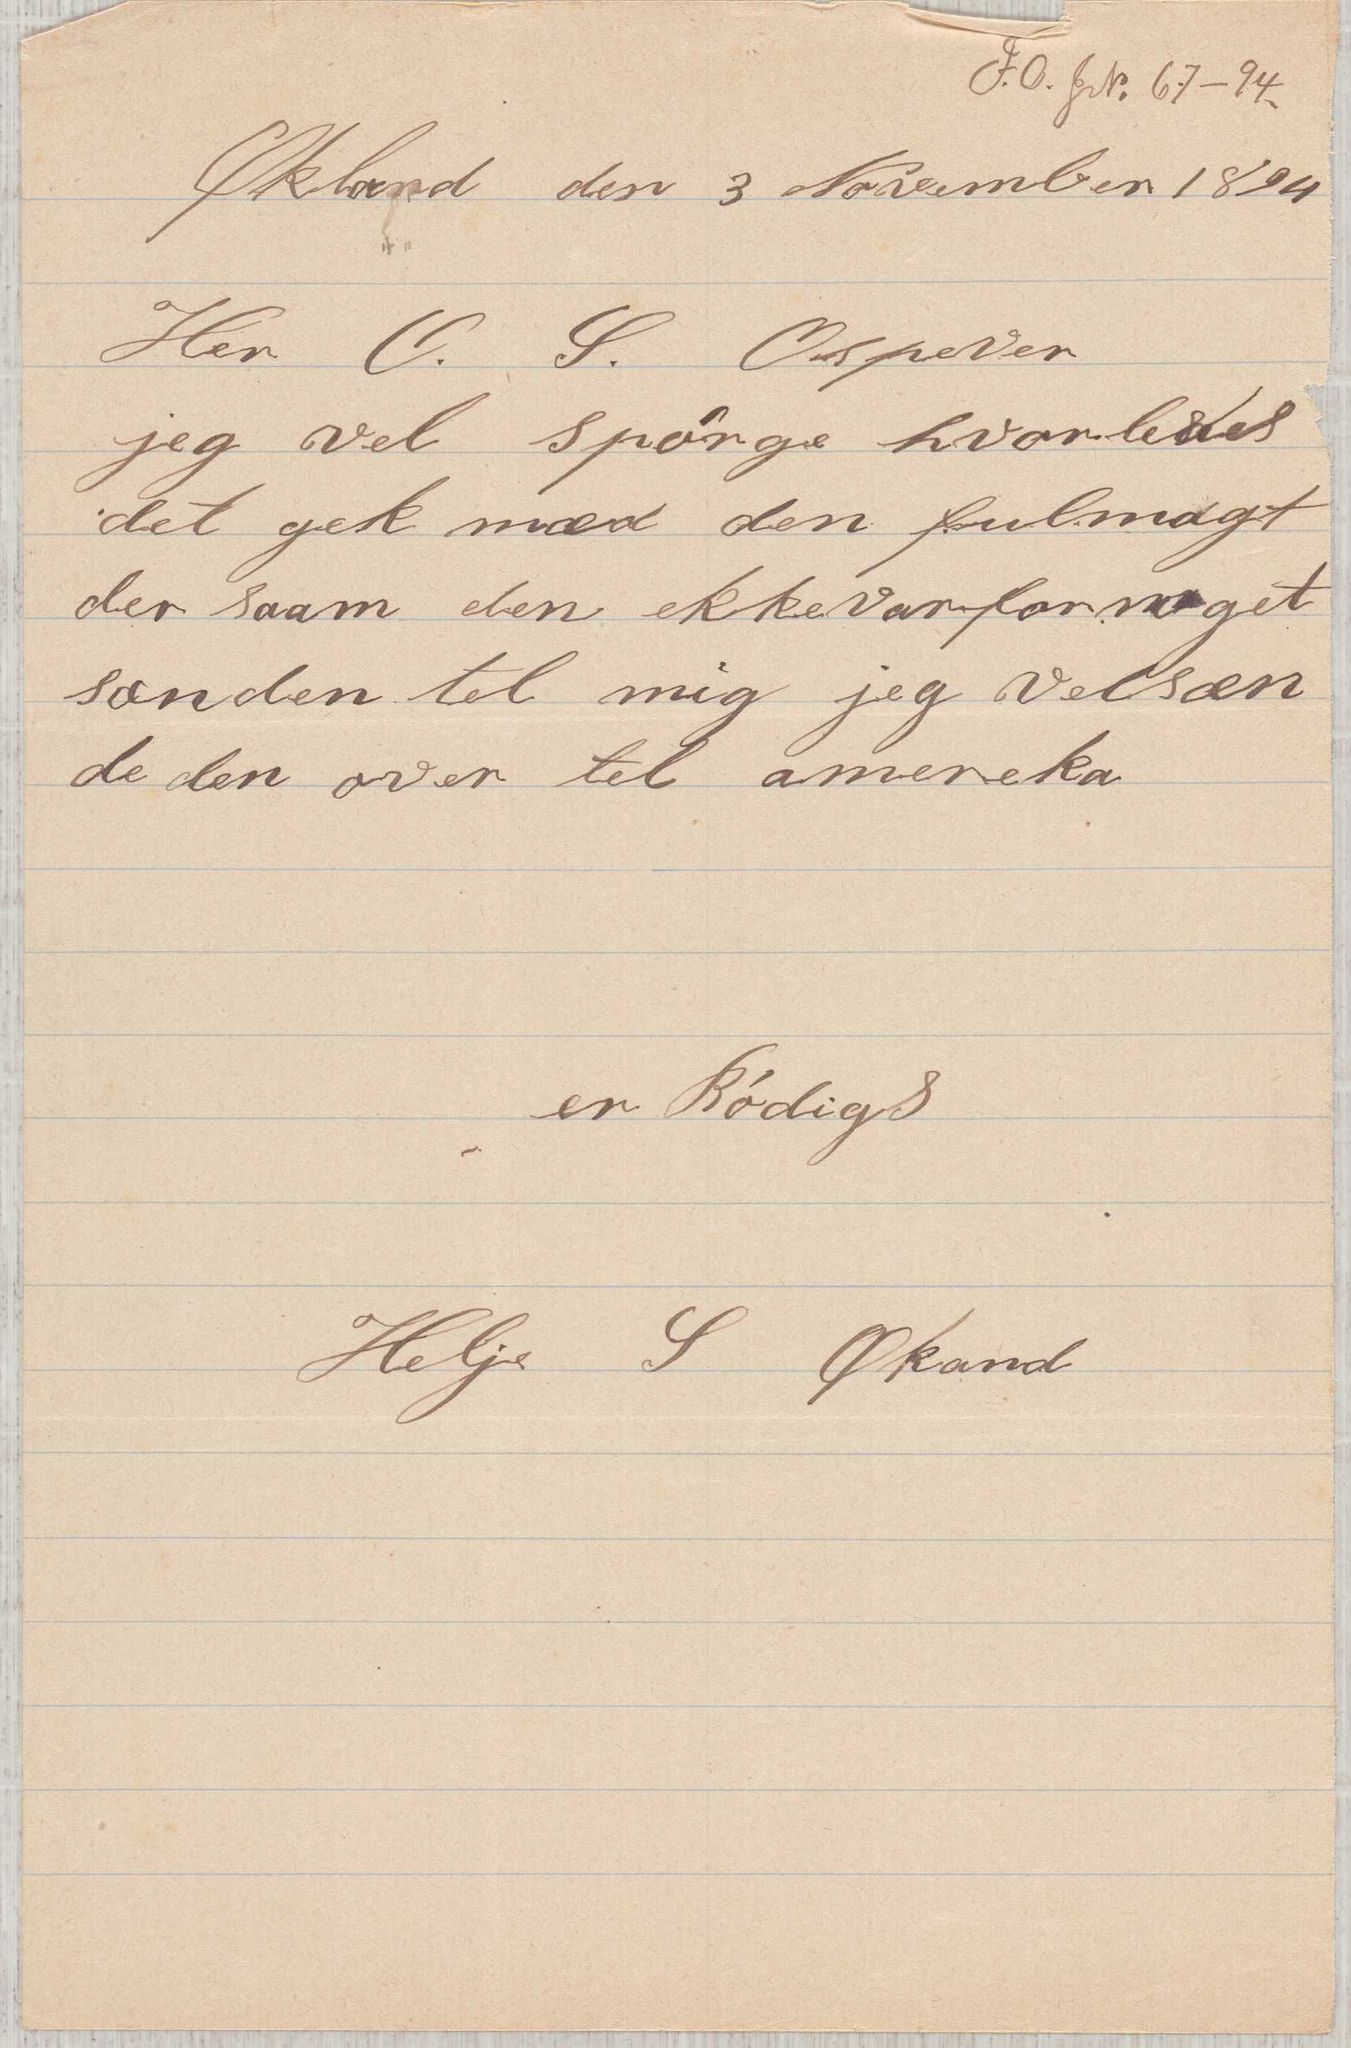 F.O. JN. 67-94.
Økland den 3 November 1894
Her O. S. Ospever
jeg vel spørge hvorledes
det gek mæd den fulmagt
der saam den ekke var for noget
sænden tel mig jeg vel sæn
de den over tel amereka
er Bødigs
Helje S Økand